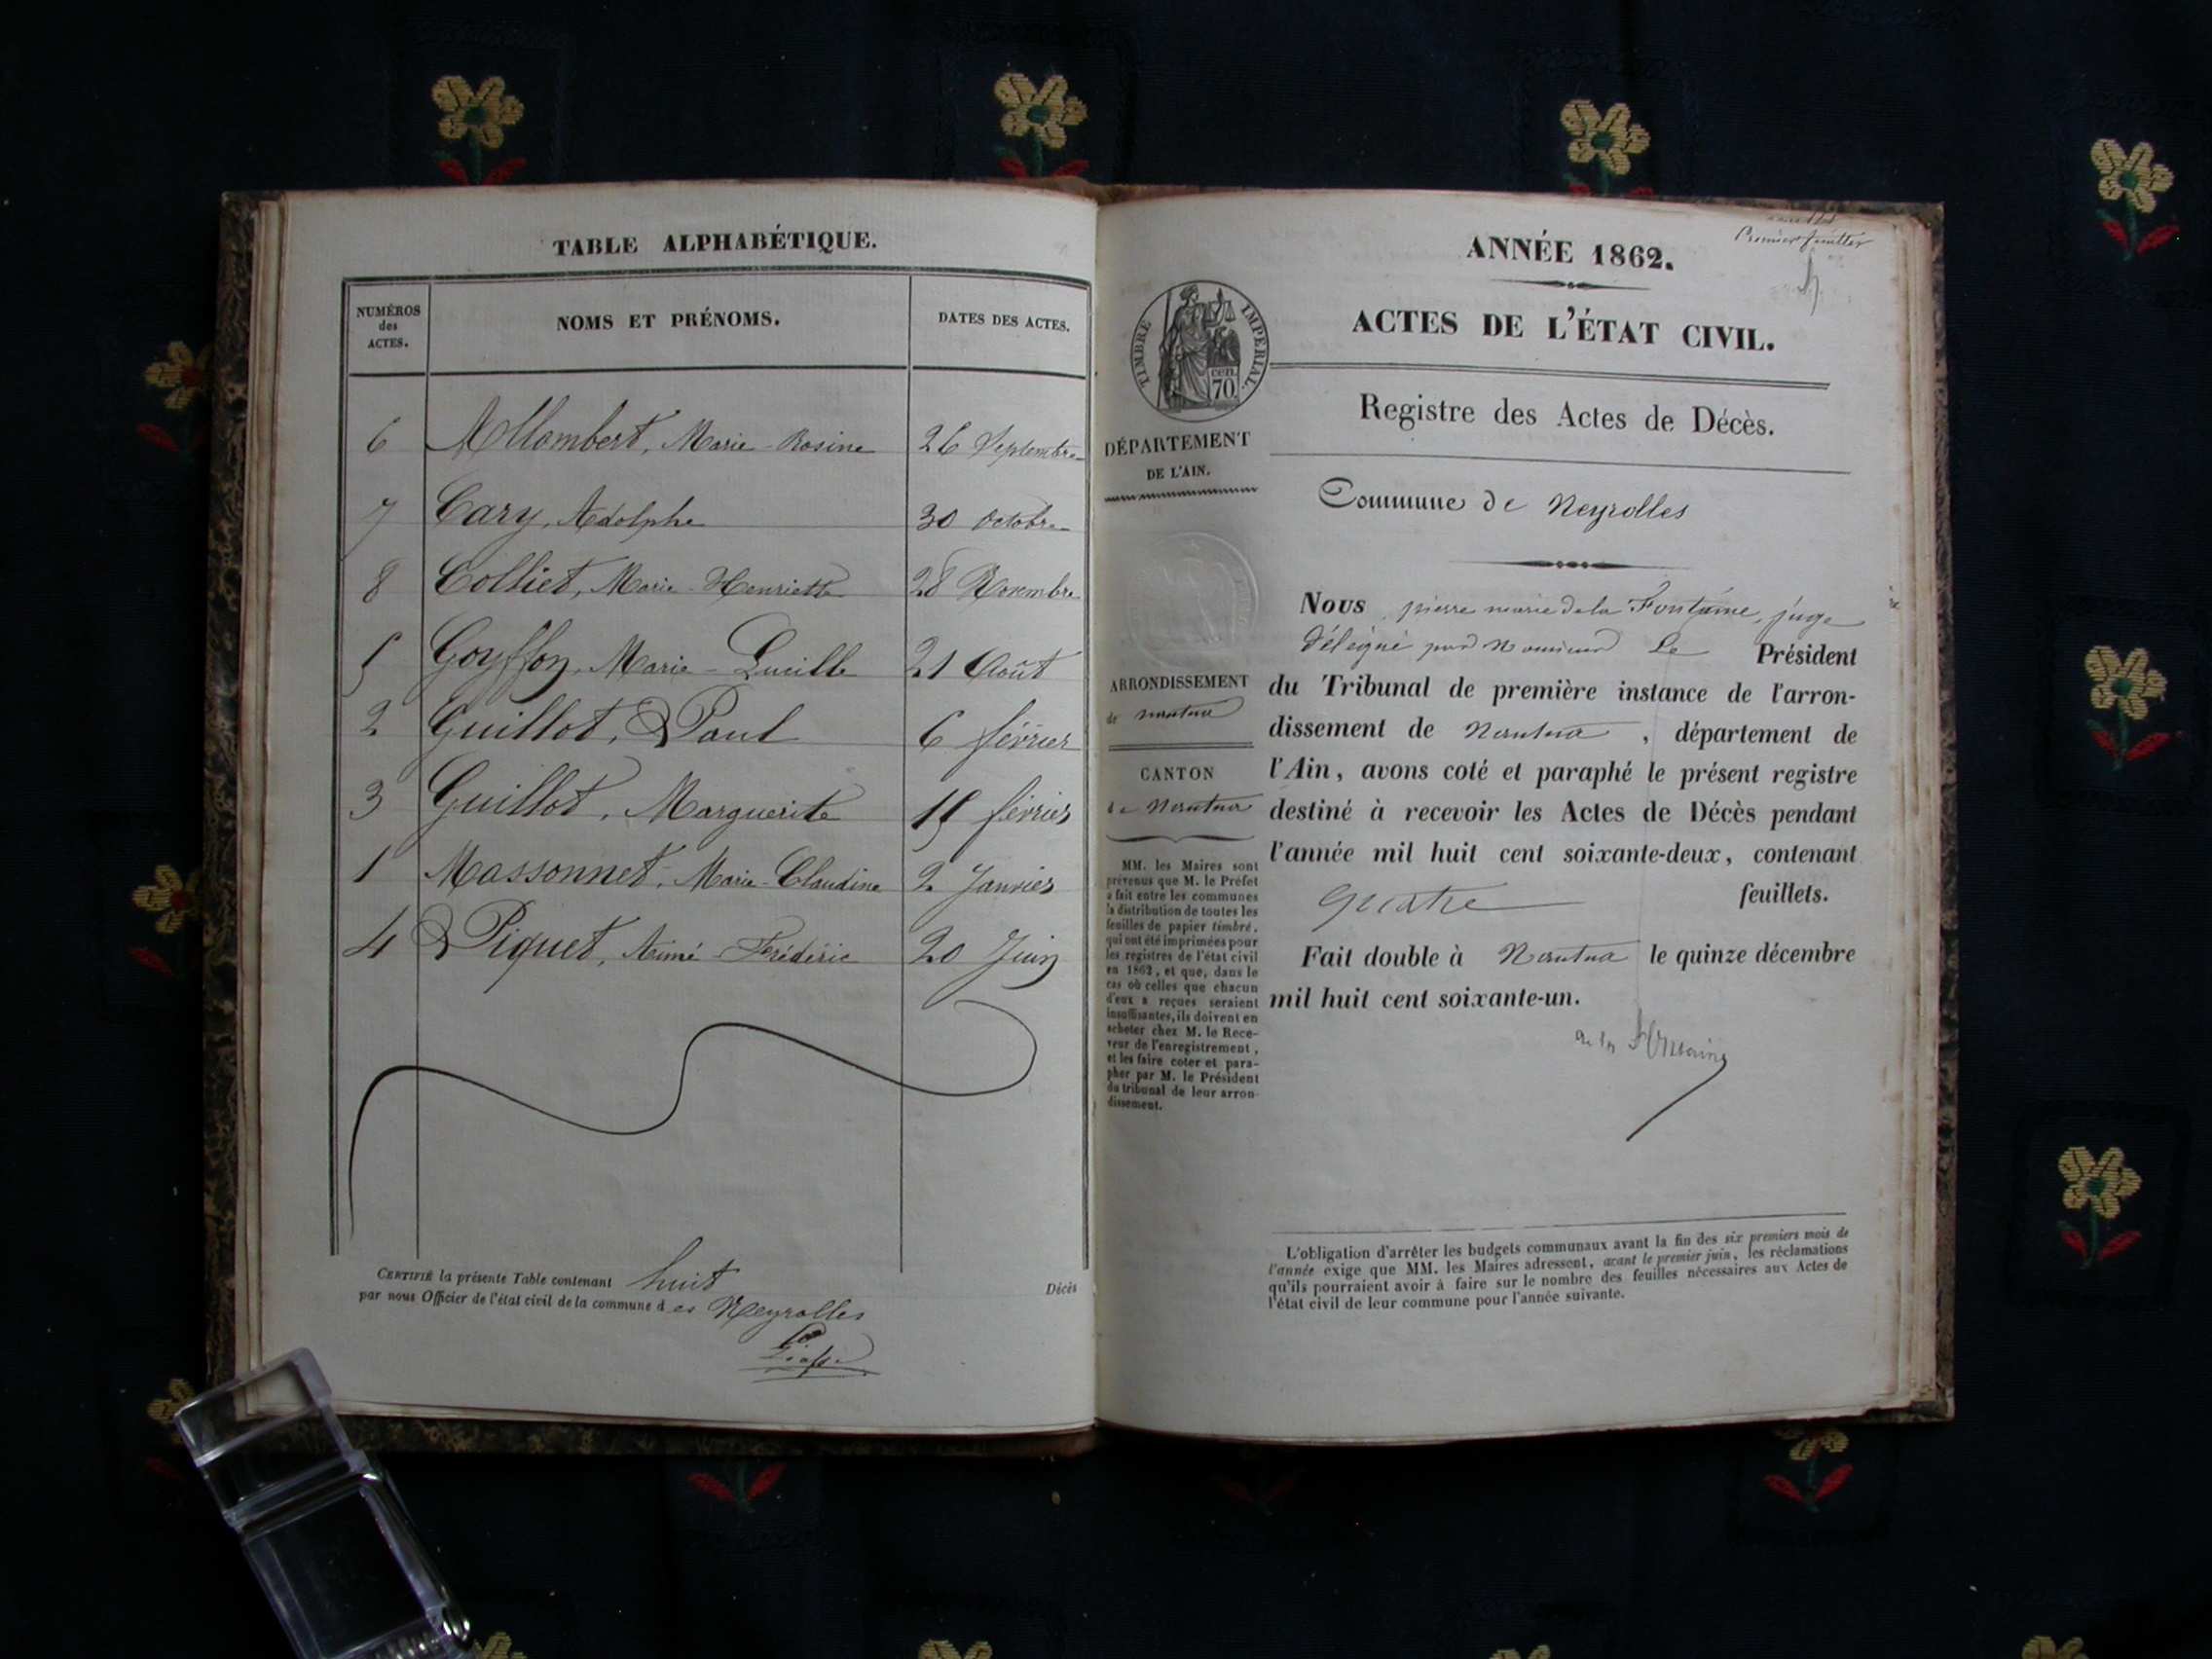 TABLE ALPHABÉTIQUE.
NUMÉROS des ACTES. NOMS ET PRÉNOMS. DATES DES ACTES.
6 Allombert, Marie-Rosine 26 Septembre
7 Cary, Adolphe 30 Octobre
8 Colliet, Marie-Henriette 28 Novembre
5 Goyffon, Marie-Lucille 21 Août
2 Guillot, Paul 6 février
3 Guillot, Marguerite 15 février
1 Massonnet, Marie-Claudine 2 Janvier
4 Piquet, Aimé-Frédéric 20 Juin
CERTIFIÉ la présente Table contenant huit
par nous Officier de l'état civil de la commune des Neyrolles
Décès
Premier feuillet
ANNÉE 1862.
ACTES DE L'ÉTAT CIVIL.
TIMBRE IMPÉRIAL.
cen.
70
Registre des Actes de Décès.
DÉPARTEMENT
DE L'AIN.
Commune de Neyrolles
Nous pierre marie de la Fontaine, juge
délégué par Monsieur Le Président
du Tribunal de première instance de l'arron-
dissement de Nantua, département de
l'Ain, avons coté et paraphé le présent registre
destiné à recevoir les Actes de Décès pendant
l'année mil huit cent soixante-deux, contenant
quatre feuillets.
Fait double à Nantua le quinze décembre
mil huit cent soixante-un.
de la Fontaine
ARRONDISSEMENT
de nantua
CANTON
de Nantua
MM. les Maires sont
prévenus que M. le Préfet
a fait entre les communes
la distribution de toutes les
feuilles de papier timbré,
qui ont été imprimées pour
les registres de l'état civil
en 1862, et que, dans le
cas où celles que chacun
d'eux a reçues seraient
insuffisantes, ils doivent en
acheter chez M. le Rece-
veur de l'enregistrement,
et les faire coter et para-
pher par M. le Président
du tribunal de leur arron-
dissement.
L'obligation d'arrêter les budgets communaux avant la fin des six premiers mois de
l'année exige que MM. les Maires adressent, avant le premier juin, les réclamations
qu'ils pourraient avoir à faire sur le nombre des feuilles nécessaires aux Actes de
l'état civil de leur commune pour l'année suivante.